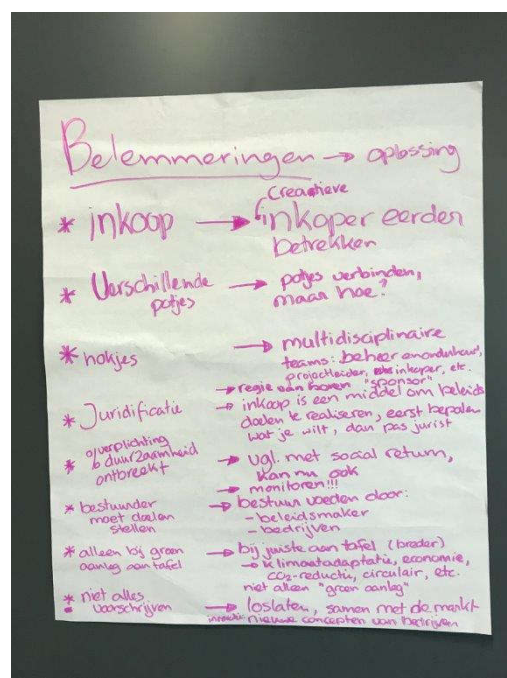 Belemmeringen → oplossing
Creatieve
* inkoop → inkoper eerder
betrekken
* Verschillende → potjes verbinden,
potjes maar hoe?
* hokjes → multidisciplinaire
teams: beheer en onderhoud,
projectleider, inkoper, etc.
→ regie van boven "sponsor"
* Juridificatie → inkoop is een middel om beleids
doelen te realiseren, eerst bepalen
wat je wilt, dan pas jurist
* o/verplichting
duurzaamheid → vgl. met social return,
ontbreekt kan nu ook
→ monitoren!!!
* bestuurder → bestuur voeden door:
moet doelen - beleidsmaker
stellen - bedrijven
* alleen bij groen → bij juiste aan tafel (breder)
aanleg aan tafel → klimaatadaptatie, economie,
CO2-reductie, circulair, etc.
niet alleen "groen aanleg"
* niet alles
voorschrijven → loslaten, samen met de markt
nieuwe concepten van bedrijven